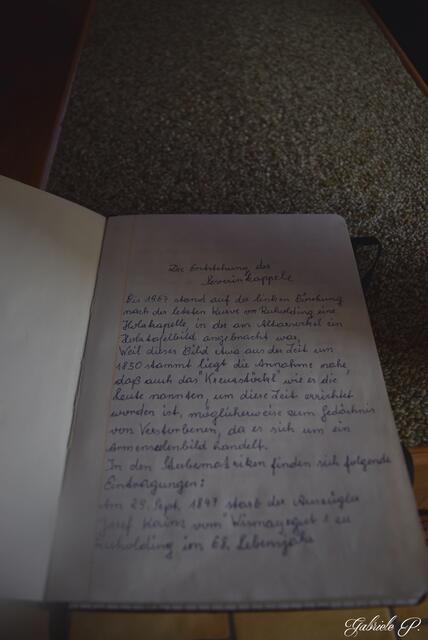 Die Entstehung der
Severinkappelle
Bis 1967 stand auf der linken Böschung
nach der letzten Kurve vor Ruholding eine
Holzkapelle, in der am Altarwinkel ein
Holztafelbild angebracht war.
Weil dieses Bild etwa aus der Zeit um
1850 stammt liegt die Annahme nahe,
daß auch das "Kreuzstöckl" wie es die
Leute nannten, um diese Zeit errichtet
worden ist, möglicherweise zum Gedächnis
von Verstorbenen, da es sich um ein
Armenseelenbild handelt.
In den Sterbematriken finden sich folgende
Eintragungen:
Am 29. Sept. 1847 starb der Auszügler
Josef Kainz vom zu
Ruholding im 68. Lebensjahr
Gabriele P.